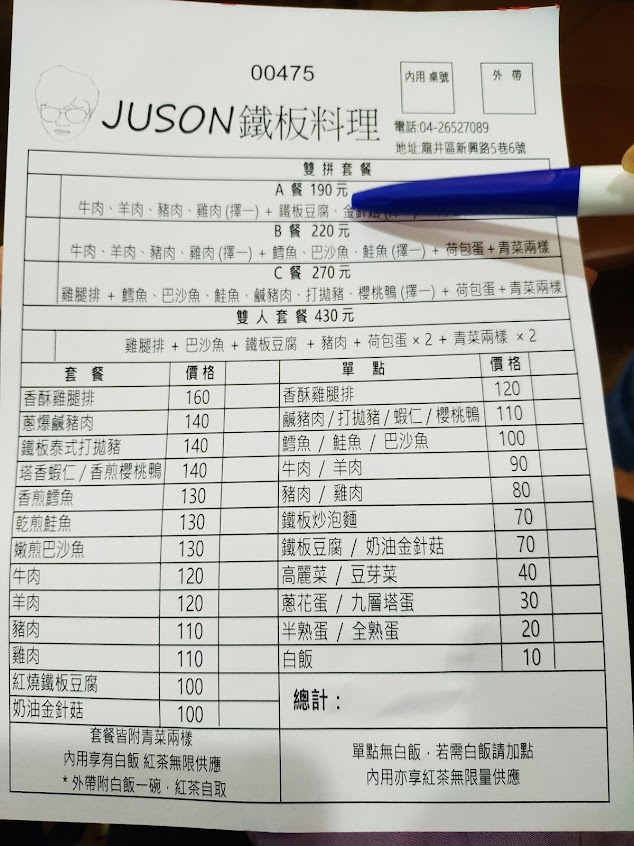 00475
內用 桌號
外 帶
JUSON鐵板料理
電話:04-26527089
地址:龍井區新興路5巷6號
雙拼套餐
A 餐 190 元
牛肉、羊肉、豬肉、雞肉(擇一) + 鐵板豆腐、
B 餐 220 元
牛肉、羊肉、豬肉、雞肉(擇一) + 鱈魚、巴沙魚、鮭魚(擇一) + 荷包蛋+青菜兩樣
C 餐 270 元
雞腿排 + 鱈魚、巴沙魚、鮭魚、鹹豬肉、打拋豬、櫻桃鴨(擇一) + 荷包蛋+青菜兩樣
雙人套餐 430 元
雞腿排 + 巴沙魚 + 鐵板豆腐 + 豬肉 + 荷包蛋×2 + 青菜兩樣 ×2
套 餐 價格 單 點 價格
香酥雞腿排 160 香酥雞腿排 120
蔥爆鹹豬肉 140 鹹豬肉/打拋豬/蝦仁/櫻桃鴨 110
鐵板泰式打拋豬 140 鱈魚 / 鮭魚 / 巴沙魚 100
塔香蝦仁/香煎櫻桃鴨 140 牛肉 / 羊肉 90
香煎鱈魚 130 豬肉 / 雞肉 80
乾煎鮭魚 130 鐵板炒泡麵 70
嫩煎巴沙魚 130 鐵板豆腐 / 奶油金針菇 70
牛肉 120 高麗菜 / 豆芽菜 40
羊肉 120 蔥花蛋 / 九層塔蛋 30
豬肉 110 半熟蛋 / 全熟蛋 20
雞肉 110 白飯 10
紅燒鐵板豆腐 100
奶油金針菇 100
總計：
套餐皆附青菜兩樣
內用享有白飯 紅茶無限供應
* 外帶附白飯一碗，紅茶自取
單點無白飯，若需白飯請加點
內用亦享紅茶無限量供應